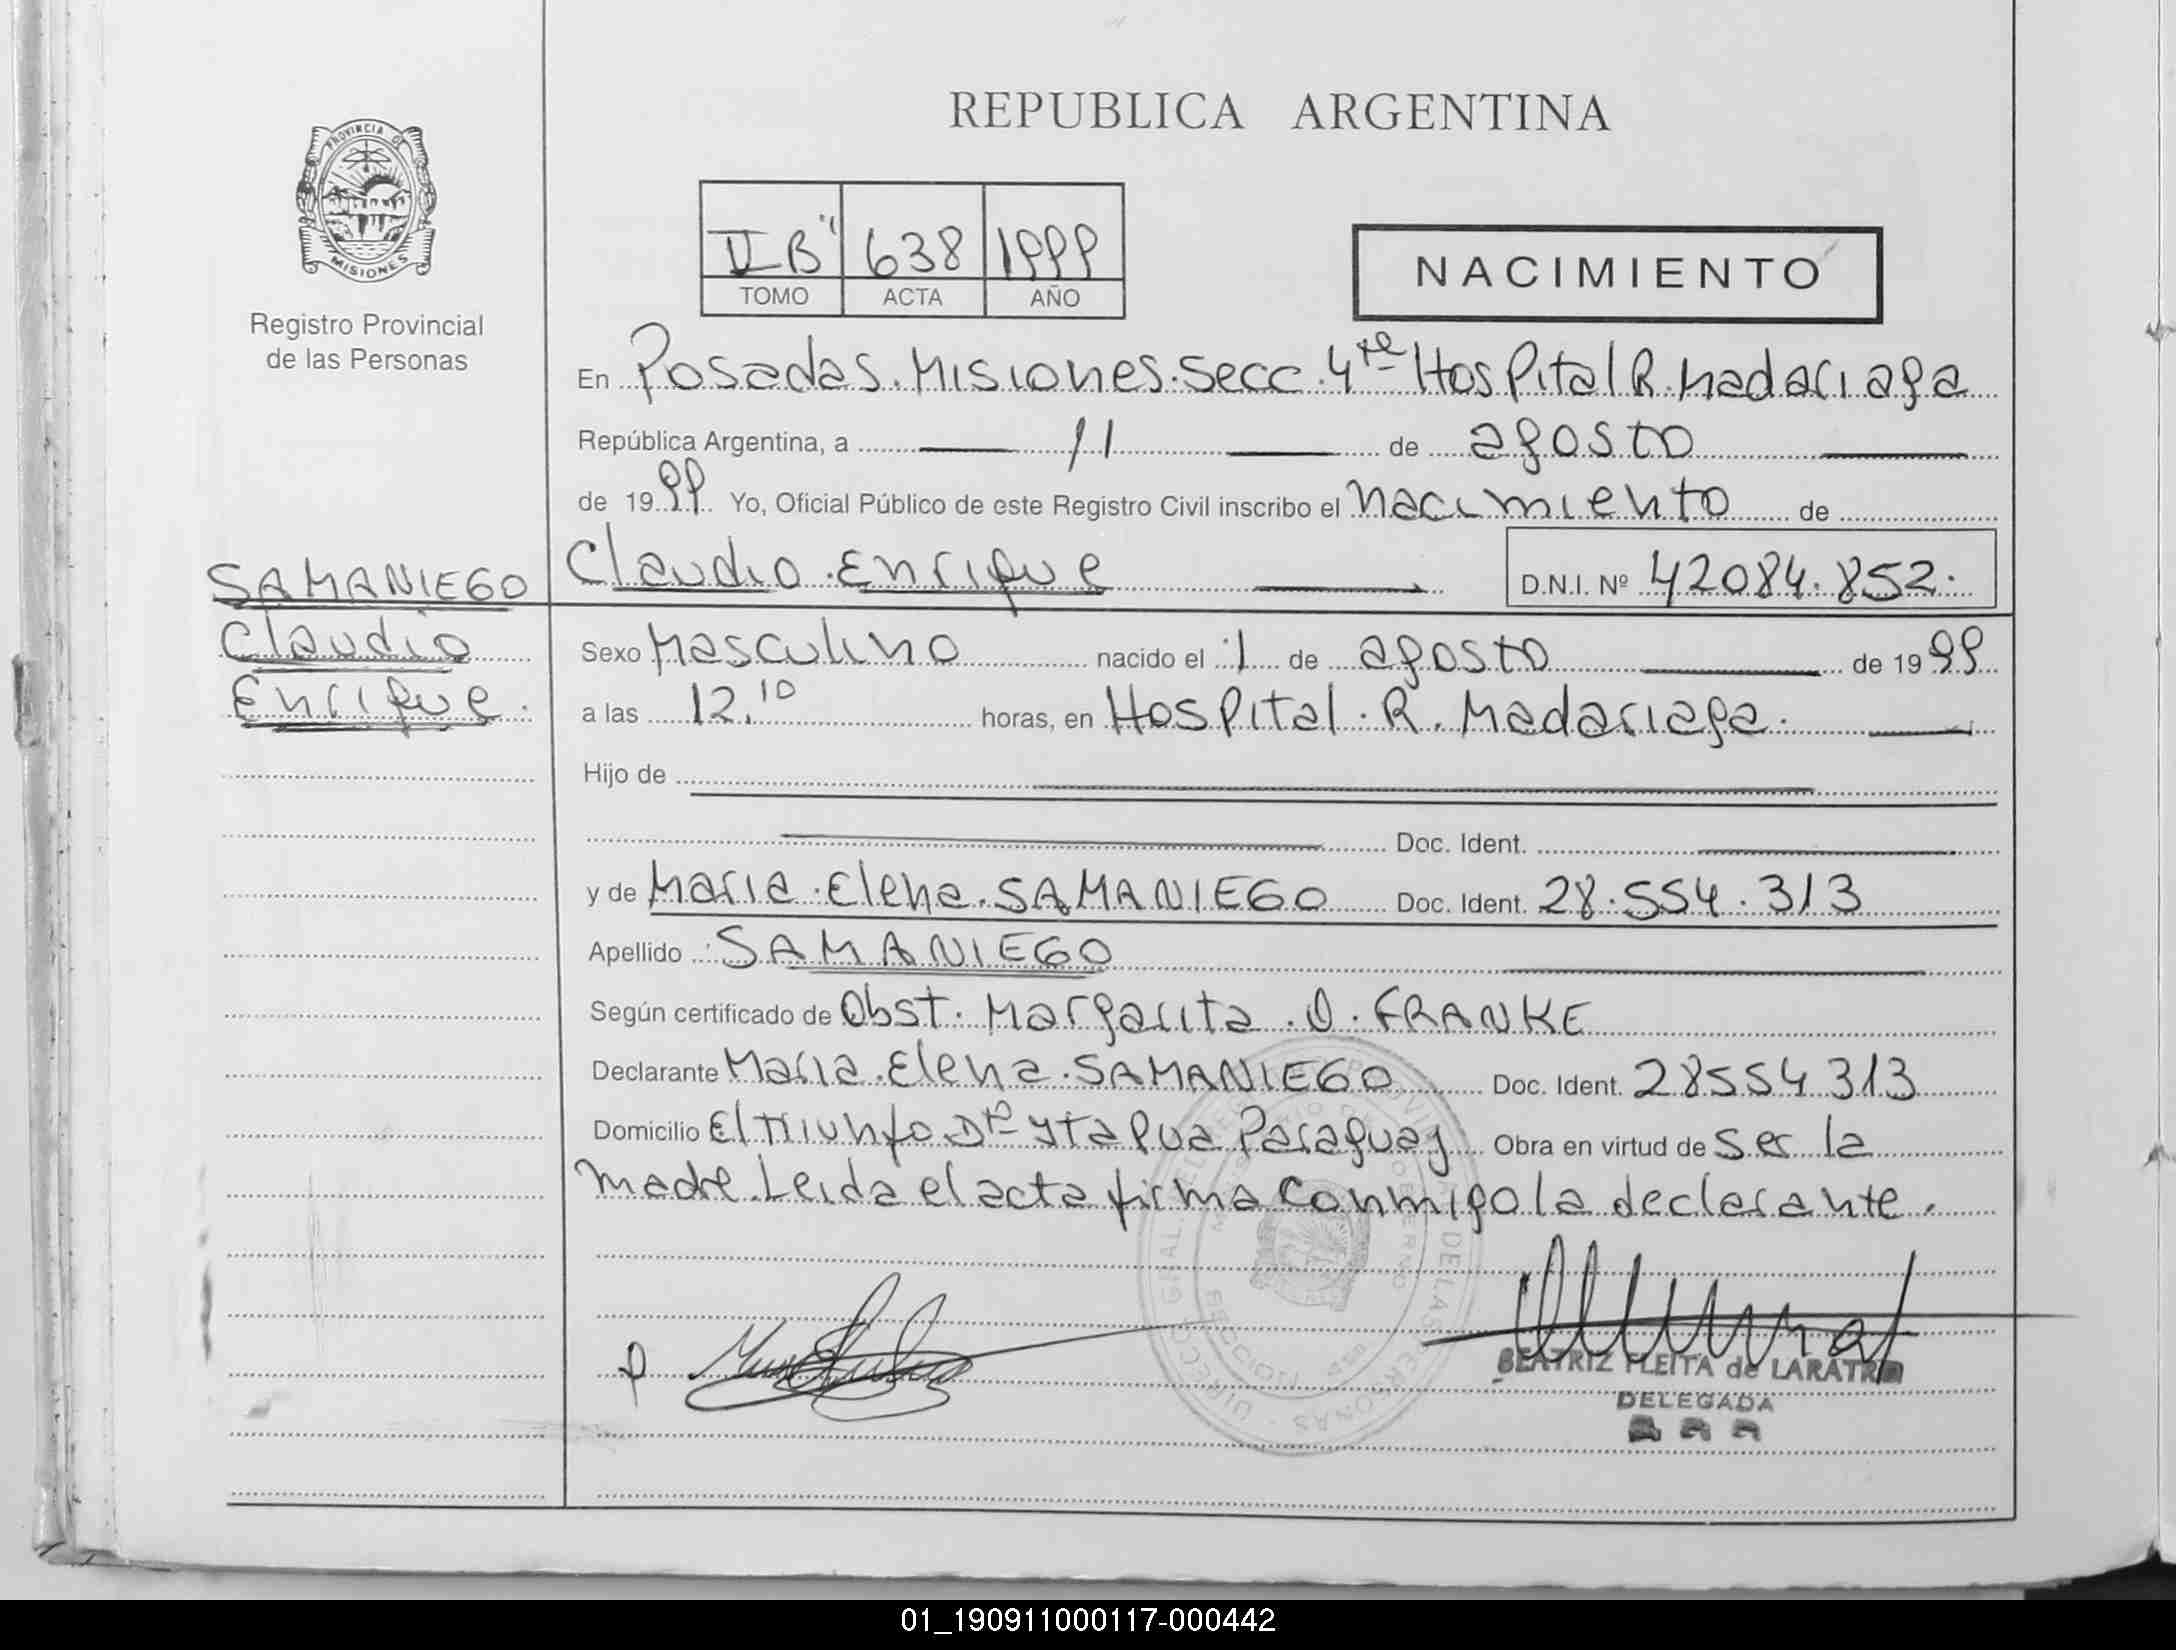 REPUBLICA ARGENTINA
PROVINCIA DE
MISIONES
Registro Provincial
de las Personas
II B" 638 1999
TOMO ACTA AÑO
NACIMIENTO
En Posadas. Misiones. Secc. 4ta Hospital R. Madariaga
República Argentina, a 11 de agosto
de 1999 Yo, Oficial Público de este Registro Civil inscribo el nacimiento de
Claudio Enrique D.N.I. Nº 42084.852.
SAMANIEGO
Claudio
Enrique.
Sexo Masculino nacido el 1 de agosto de 1999
a las 12.10 horas, en Hospital. R. Madariaga.
Hijo de
Doc. Ident.
y de Maria. Elena. SAMANIEGO Doc. Ident. 28.554.313
Apellido SAMANIEGO
Según certificado de Obst. Margarita. O. FRANKE
Declarante Maria. Elena. SAMANIEGO Doc. Ident. 28554313
Domicilio El Triunfo Dto Ytapua Paraguay Obra en virtud de Ser la
madre. Leida el acta firma conmigo la declarante.
BEATRIZ FLEITA de LARATRO
DELEGADA
01_190911000117-000442